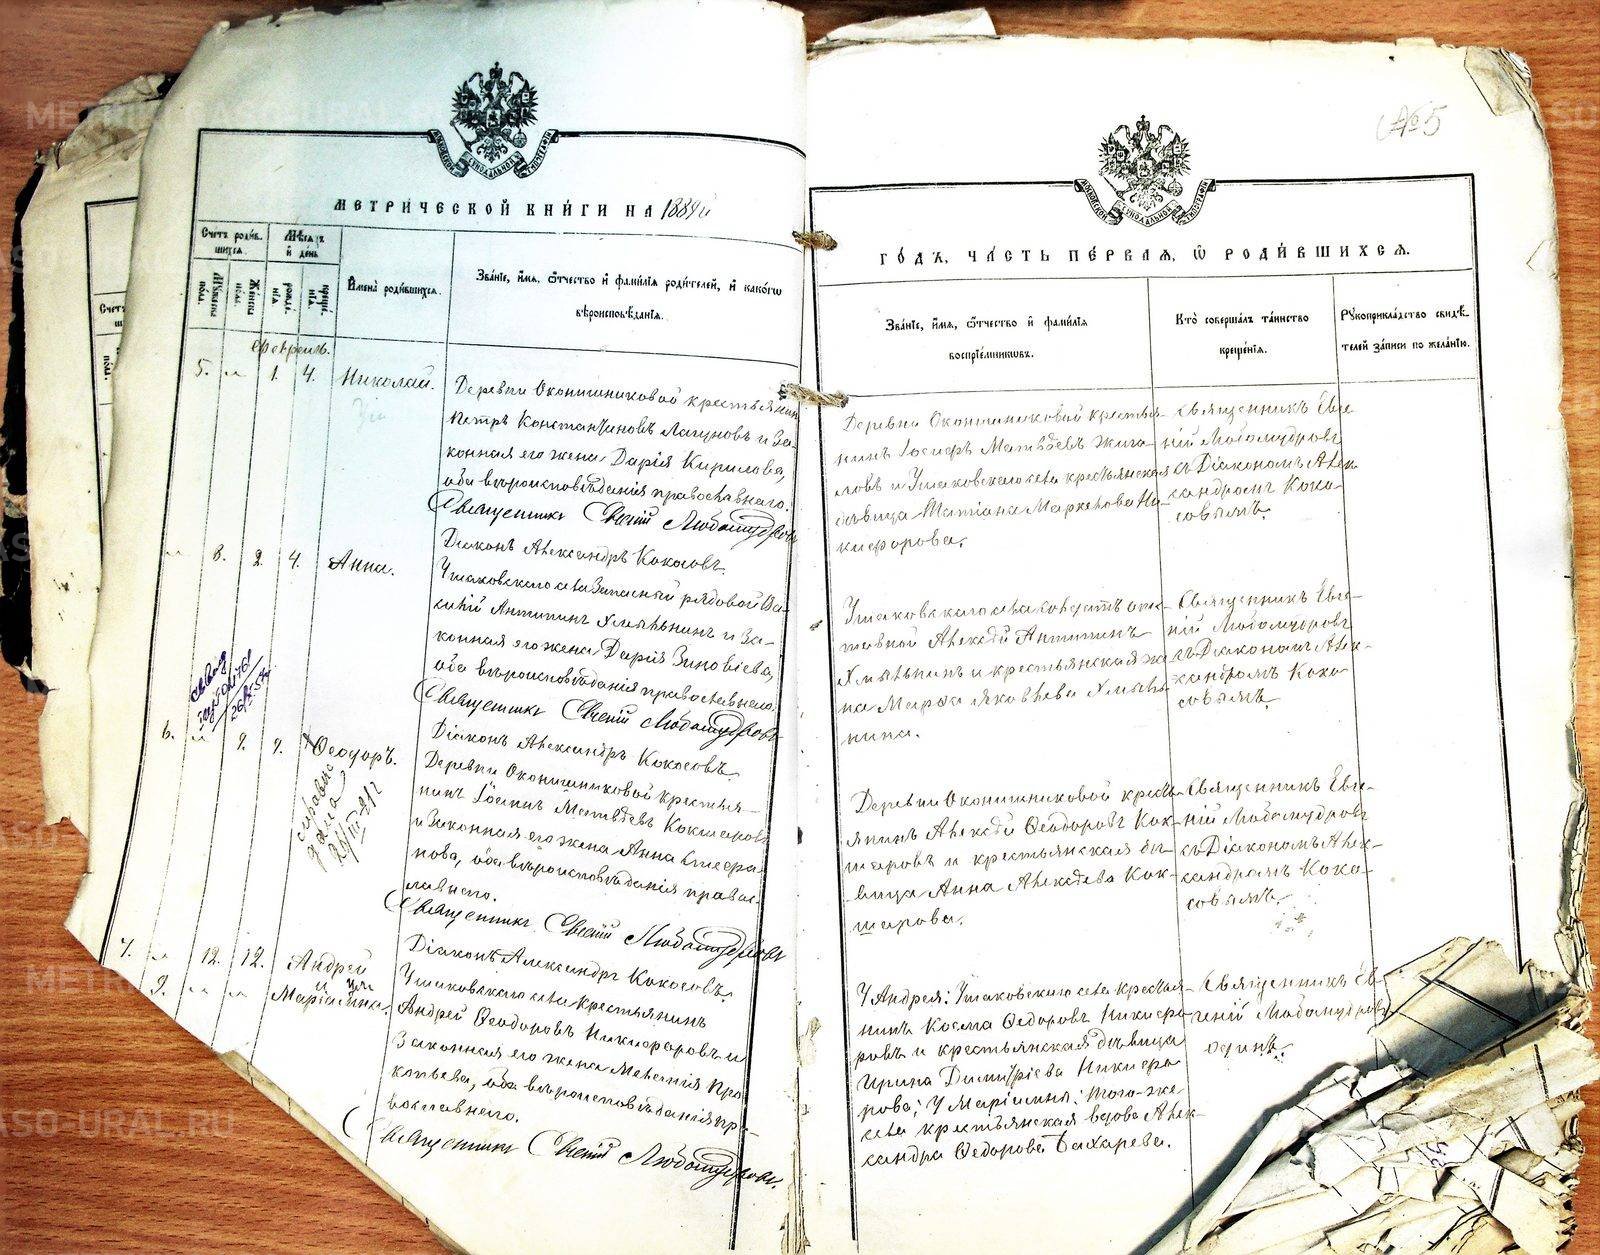 МЕТРИ́ЧЕСКОЙ КНИ́ГИ НА 1889й
Счетъ роди́в-
шихся.
Мѣсяцъ
и҆ де́нь
Му́жеска
пол.
Же́нска
пол.
рожде́-
нїѧ
креще́-
нїѧ
И҆мена̀ роди́вшихся.
Зва́нїе, и҆́мѧ, ѻ҆́тчество и҆ фами́лїѧ роди́телей, и҆ како́гѡ
вѣроисповѣ́данїѧ.
Февраль.
5. „ 1. 4. Николай.
Деревни Оконишниковой крестьянинъ
Петръ Константиновъ Лагуновъ и за-
конная его жена Дарія Кирилова,
оба вѣроисповѣданія православнаго.
Священникъ Евгеній Любомудровъ
Діаконъ Александръ Кокосовъ.
„ 8. 2. 4. Анна.
Ушаковскаго села Запасный рядовой Ва-
силій Антипинъ Хмѣльнинъ и за-
конная его жена Дарія Зиновіева,
оба вѣроисповѣданія православнаго.
Священникъ Евгеній Любомудровъ
Діаконъ Александръ Кокосовъ.
6. „ 9. 9. Ѳеодоръ.
справка
дана
26/III-912
Деревни Оконишниковой крестья-
нинъ Іоаннъ Матвѣевъ Кокшаровъ
и законная его жена Анна Стефа-
нова, оба вѣроисповѣданія правос-
лавнаго.
Священникъ Евгеній Любомудровъ
Діаконъ Александръ Кокосовъ.
7. „ 12. 12. Андрей
и
9. „ „ Маріамна.
Ушаковскаго села крестьянинъ
Андрей Ѳеодоровъ Никифоровъ и
законная его жена Меланія Про-
копьева, оба вѣроисповѣданія пра-
вославнаго.
Священникъ Евгеній Любомудровъ.
№ 5
ГО́ДЪ, ЧА́СТЬ ПЕ́РВАѦ, Ѡ҆ РОДИ́ВШИХСѦ.
Зва́нїе, и҆́мѧ, ѻ҆́тчество и҆ фами́лїѧ
воспрїе́мникѡвъ.
Кто̀ соверша́лъ та́инство
креще́нїѧ.
Рукоприкла́дство свидѣ́-
телей за́писи по жела́нїю.
Деревни Оконишниковой крестья-
нинъ Іосифъ Матвѣевъ Жига-
ловъ и Ушаковскаго села крестьянская
дѣвица Татіана Маркелова Ни-
кифорова.
Священникъ Евге-
ній Любомудровъ
съ Діакономъ Алек-
сандромъ Коко-
совымъ.
Ушаковскаго села солдатъ отс-
тавной Алексѣй Антипинъ
Хмѣльнинъ и крестьянская же-
на Марѳа Яковлева Хмѣль-
нина.
Священникъ Евге-
ній Любомудровъ
съ Діакономъ Алек-
сандромъ Коко-
совымъ.
Деревни Оконишниковой кресть-
янинъ Алексѣй Ѳеодоровъ Кок-
шаровъ и крестьянская дѣ-
вица Анна Алексѣева Кок-
шарова.
Священникъ Евге-
ній Любомудровъ
съ Діакономъ Алек-
сандромъ Коко-
совымъ.
У Андрея: Ушаковскаго села кресть-
янинъ Косма Ѳедоровъ Никифо-
ровъ и крестьянская дѣвица
Ирина Димитріева Никифо-
рова; У Маріамны: того-же
села крестьянская вдова Алек-
сандра Ѳедорова Бахарева.
Священникъ Ев-
геній Любомудровъ
одинъ.